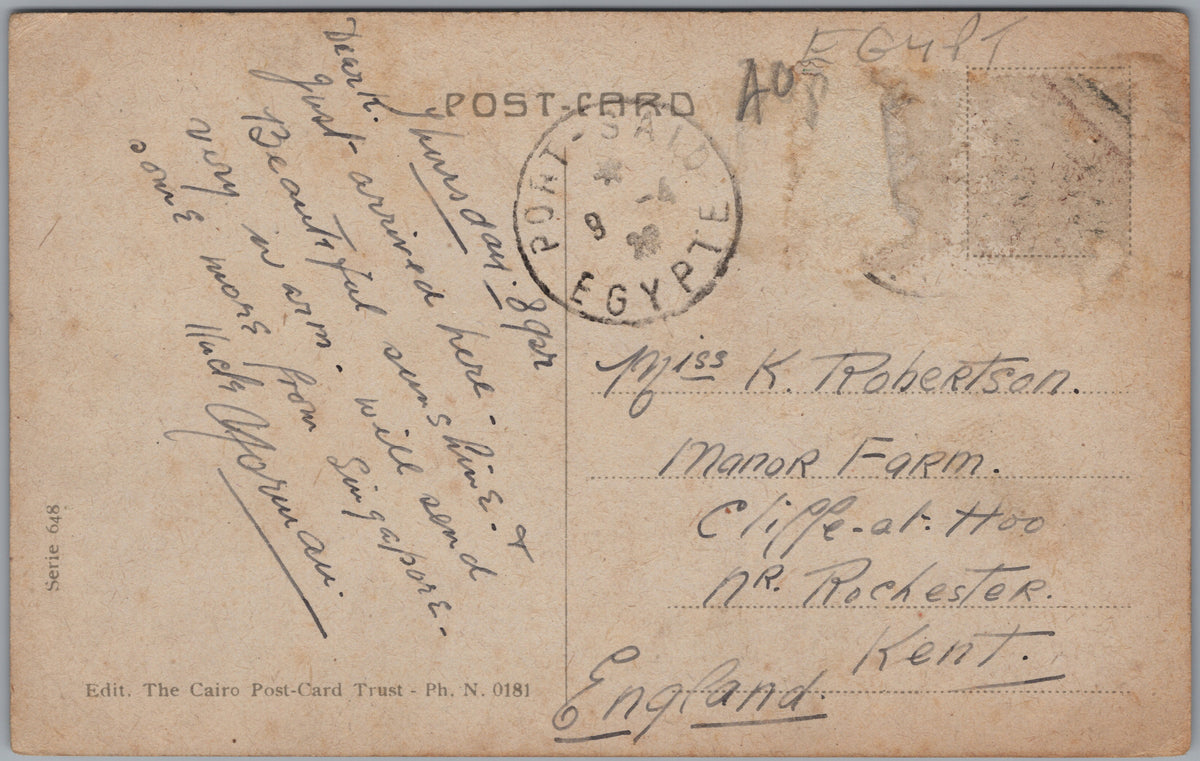 EGYPT
POST-CARD
PORT-SAID
8 -4
EGYPTE
Thursday. 8 Apr
Dear K.
Just arrived here -
Beautiful sunshine. &
very warm. will send
some more from Singapore -
Norman.
Miss K. Robertson.
Manor Farm.
Cliffe-at-Hoo
NR. Rochester.
Kent.
England.
Serie 648
Edit. The Cairo Post-Card Trust - Ph. N. 0181